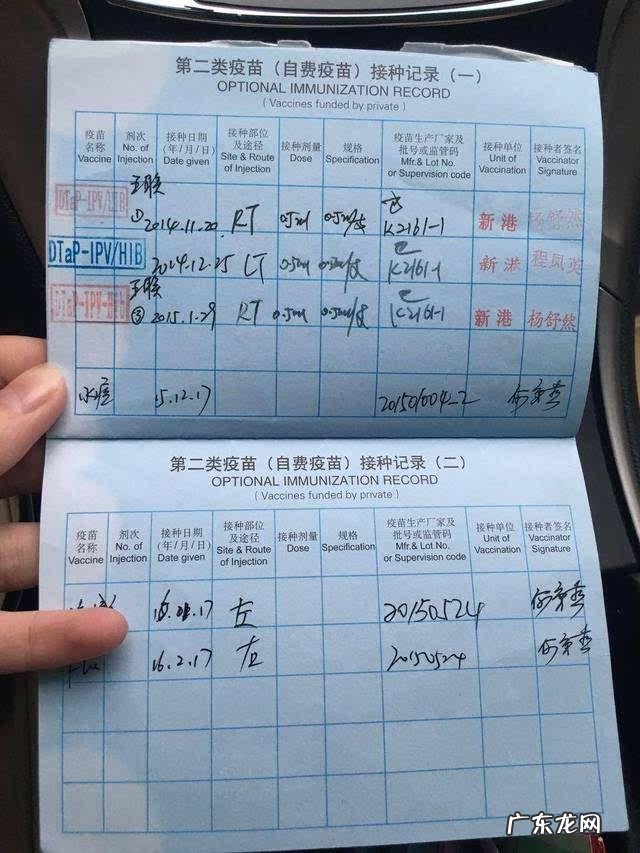 第二类疫苗（自费疫苗）接种记录（一）
OPTIONAL IMMUNIZATION RECORD
( Vaccines funded by private )
疫苗名称 Vaccine 剂次 No. of Injection 接种日期 (年/月/日) Date given 接种部位及途径 Site & Route of Injection 接种剂量 Dose 规格 Specification 疫苗生产厂家及批号或监管码 Mfr.& Lot No. or Supervision code 接种单位 Unit of Vaccination 接种者签名 Vaccinator Signature
五联
DTaP-IPV/HIB ① 2014.11.20 RT 0.5ml 0.5ml/支 K2161-1 新港 杨舒然
DTaP-IPV/HIB 2014.12.25 LT 0.5ml 0.5ml/支 K2161-1 新港 程凤英
五联
DTaP-IPV-Hib ③ 2015.1.29 RT 0.5ml 0.5ml/支 K2161-1 新港 杨舒然
水痘 15.12.17 201501004-2
第二类疫苗（自费疫苗）接种记录（二）
OPTIONAL IMMUNIZATION RECORD
( Vaccines funded by private )
疫苗名称 Vaccine 剂次 No. of Injection 接种日期 (年/月/日) Date given 接种部位及途径 Site & Route of Injection 接种剂量 Dose 规格 Specification 疫苗生产厂家及批号或监管码 Mfr.& Lot No. or Supervision code 接种单位 Unit of Vaccination 接种者签名 Vaccinator Signature
左 20150524
16.2.17 右 20150524
广东龙网